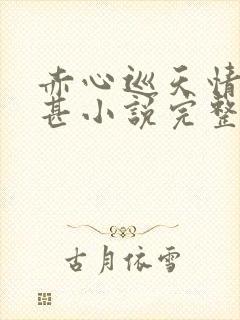 赤心巡天情
甚小說完整
古月依雪